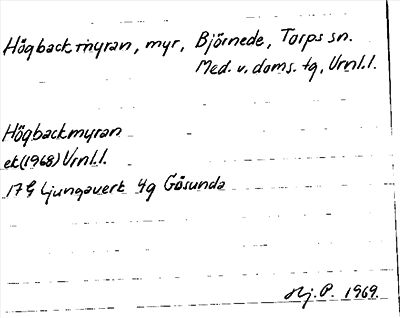 Högbackmyran, myr, Björnede, Torps sn.
Med. v. doms. tg, Vrnl.l.
Högbackmyran
ek(1968) Vrnl.l.
17G Ljungaverk 4g Gösunda
Hj. P. 1969.